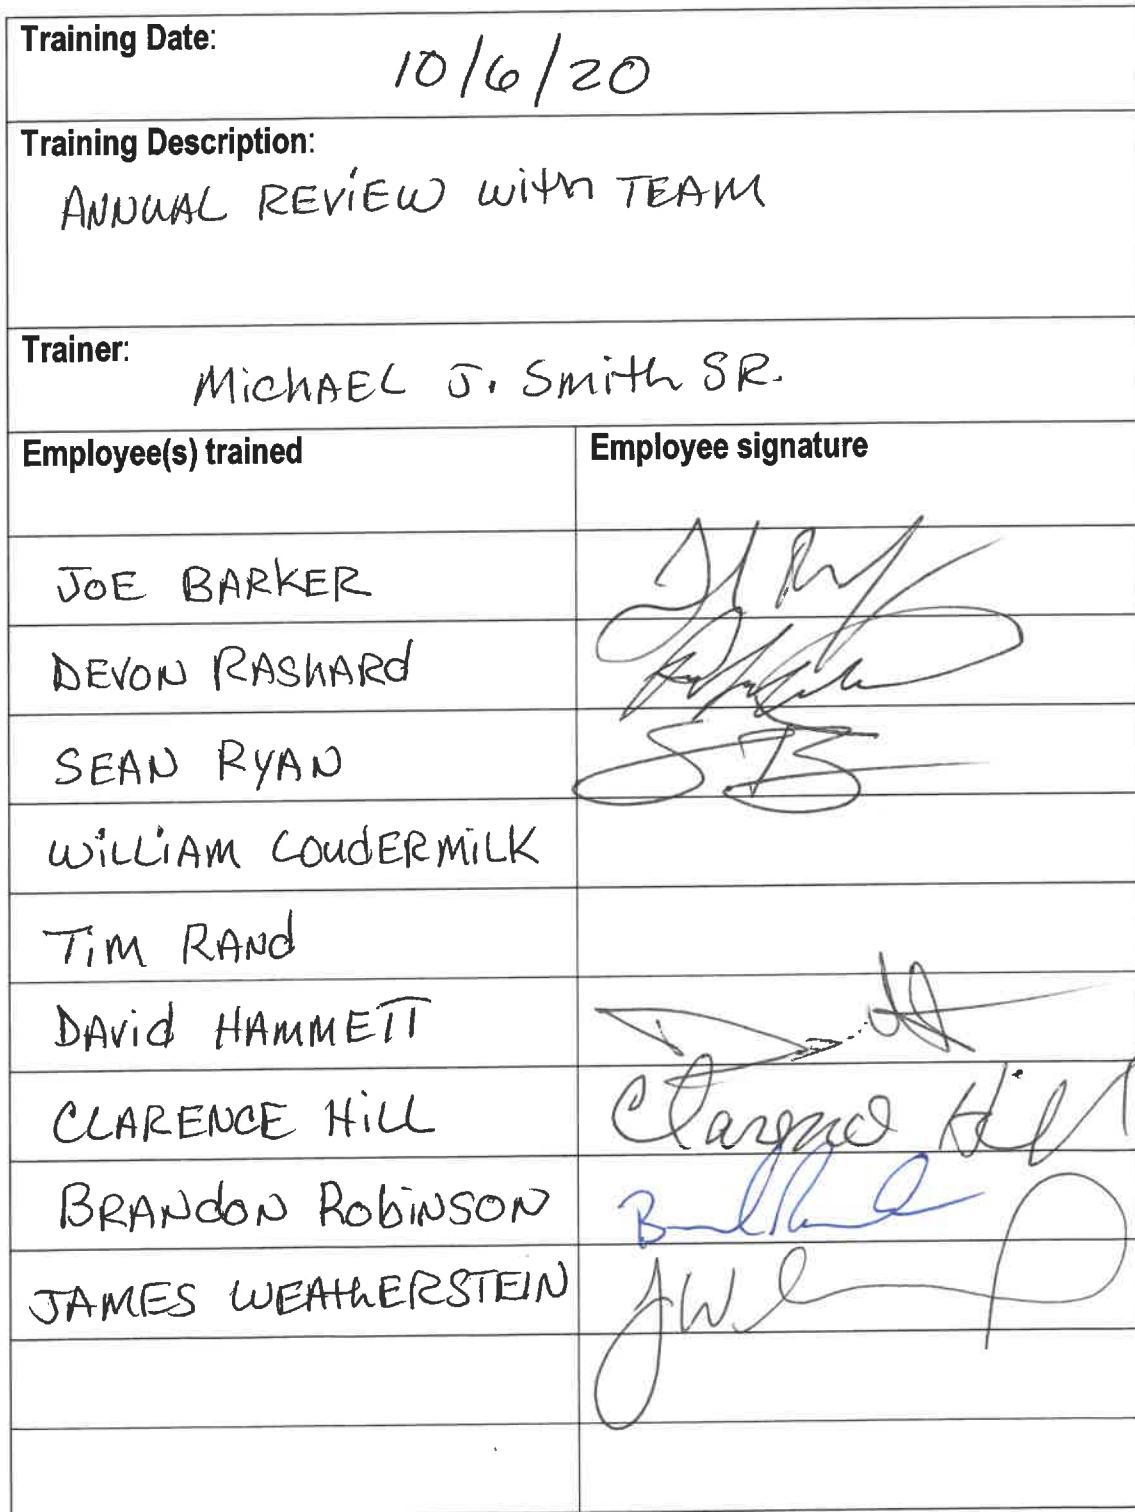 Training Date:
10/6/20
Training Description:
ANNUAL REVIEW with TEAM
Trainer:
MichAEL J. Smith SR.
Employee(s) trained Employee signature
JOE BARKER
DEVON RASHARd
SEAN RYAN
WiLLiAM COUdERMiLK
TiM RANd
DAVid HAMMETT
CLARENCE HiLL Clarence Hill
BRANdON RobiNSON
JAMES WEAthERSTEIN